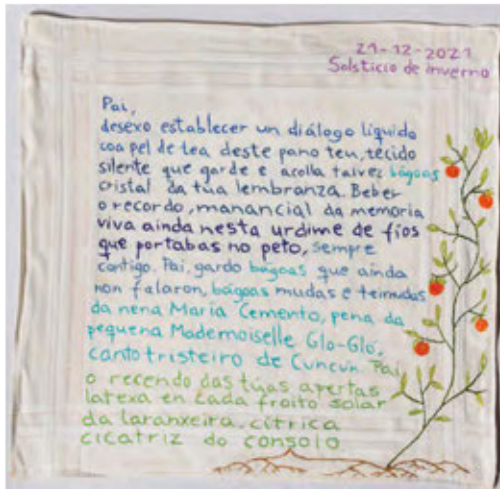 21-12-2021
Solsticio de inverno
Pai,
desexo establecer un diálogo líquido
coa pel de tea deste pano teu, tecido
silente que garde e acolla talvez bágoas
cristal da túa lembranza. Beber
o recordo, manancial da memoria
viva aínda nesta urdime de fíos
que portabas no peto, sempre
contigo. Pai, gardo bágoas que aínda
non falaron, bágoas mudas e teimudas
da nena María Cemento, pena da
pequena Mademoiselle Glo-Glo,
canto tristeiro de Cuncún. Pai,
o recendo das túas apertas
latexa en cada froito solar
da laranxeira, cítrica
cicatriz do consolo